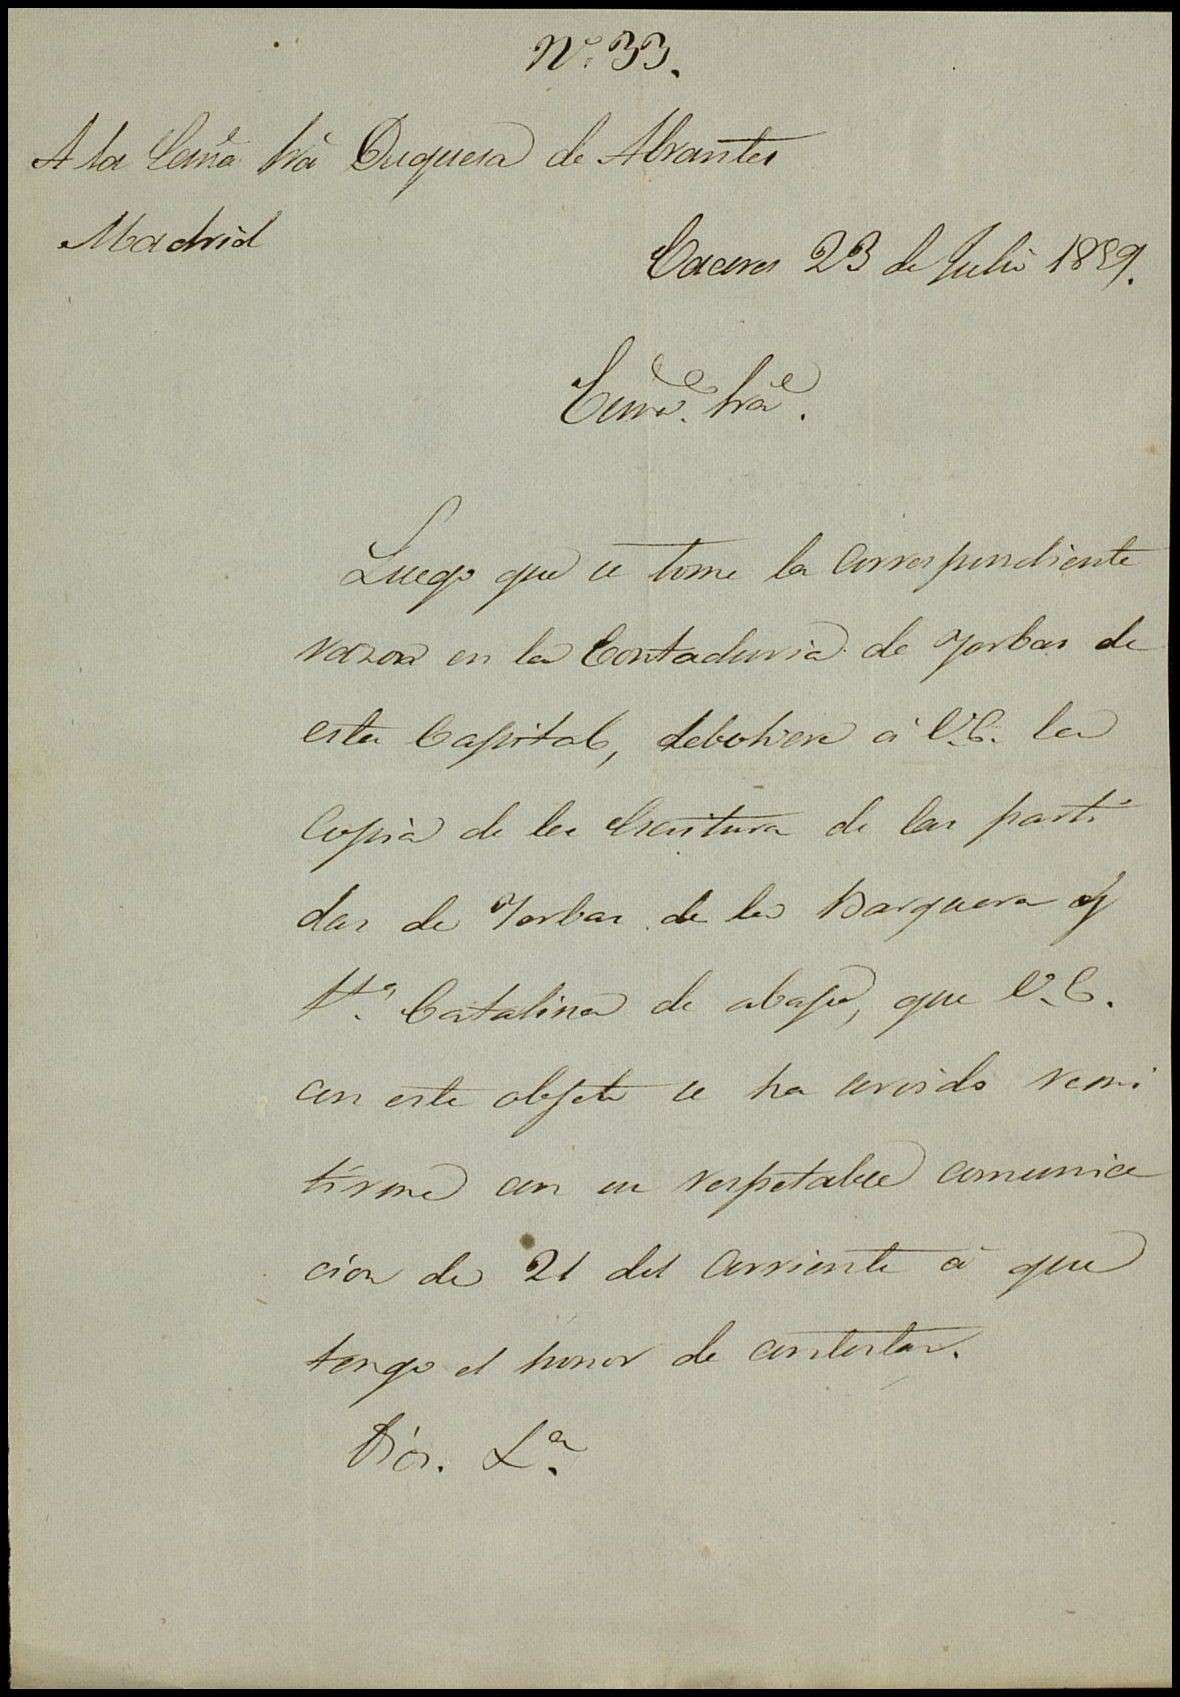 Nº 33.
A la Exmª Srâ Duquesa de Abrantes
Madrid
Caceres 23 de Julio 1859.
Exmª. Srâ.
Luego que se tome la correspondiente
razon en la Contaduria de Yerbas de
esta Capital, debolvere á V.E. la
Copia de la Escritura de las parti
das de Yerbas de la Barquera y
Stª. Catalina de abajo, que V.E.
con este objeto se ha servido remi
tirme con su respetable comunica
cion de 21 del corriente á que
tengo el honor de contestar.
Dios. Lª.